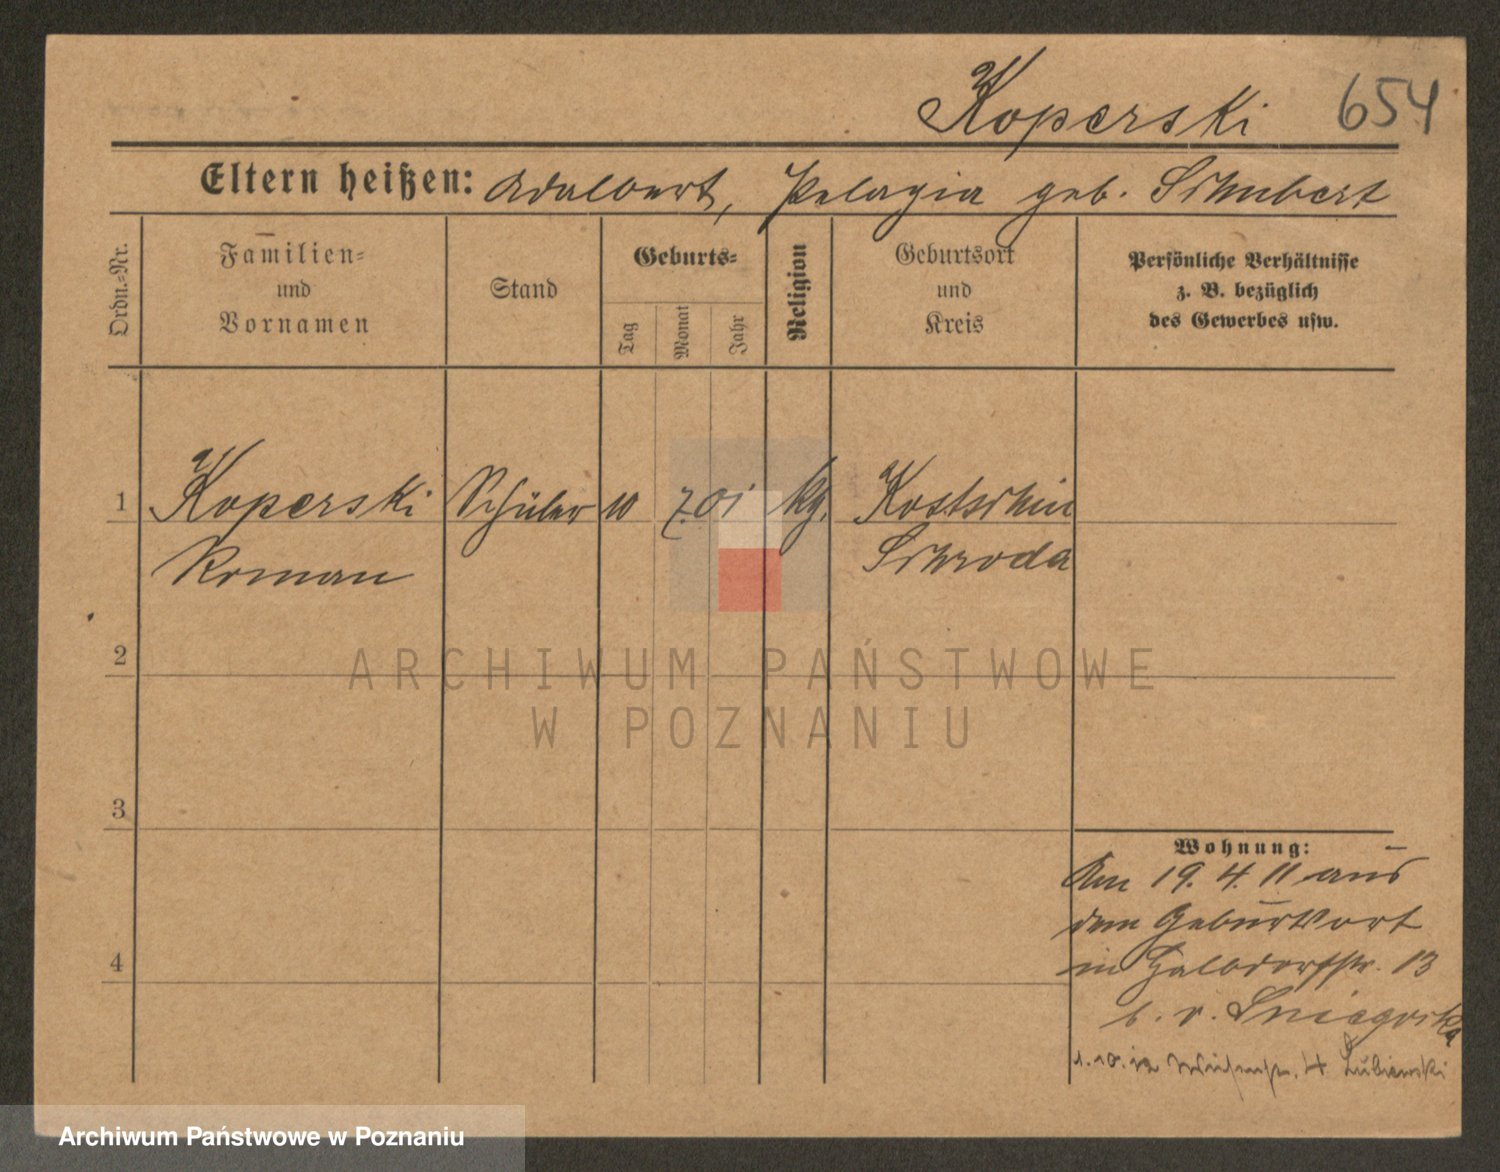 Koperski 654
Eltern heißen: Adalbert, Pelagia geb. Schubert
Ordn.-Nr.
Familien-
und
Vornamen
Stand
Geburts-
Tag
Monat
Jahr
Religion
Geburtsort
und
Kreis
Persönliche Verhältnisse
z. B. bezüglich
des Gewerbes usw.
1 Koperski Schüler 10 7. 01 kg. Kostschin
Roman Schroda
2
ARCHIWUM PAŃSTWOWE
W POZNANIU
3
Wohnung:
Am 19. 4. 11 aus
dem Geburtsort
in Halbdorfstr. 13
b. v. Sniegorska
4
1.10.12 4 Lubienski
Archiwum Państwowe w Poznaniu